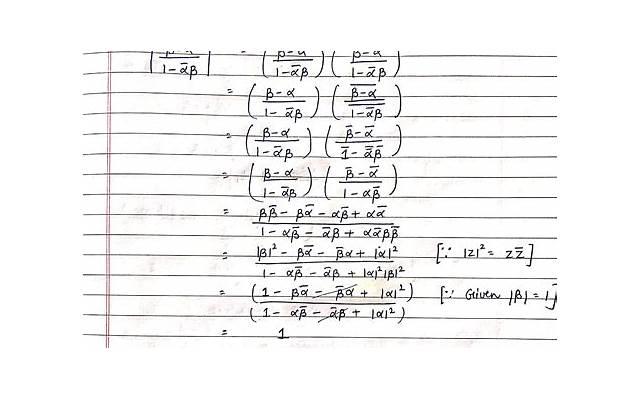 |(β-α)/(1-ᾱβ)| = ((β-α)/(1-ᾱβ)) ((β-α)/(1-ᾱβ))
= ((β-α)/(1-ᾱβ)) (\overline{β-α}/\overline{1-ᾱβ})
= ((β-α)/(1-ᾱβ)) ((β̄-ᾱ)/(1̄-\bar{ᾱ}β̄))
= ((β-α)/(1-ᾱβ)) ((β̄-ᾱ)/(1-αβ̄))
= (ββ̄ - βᾱ - αβ̄ + αᾱ)/(1 - αβ̄ - ᾱβ + αᾱββ̄)
= (|β|² - βᾱ - β̄α + |α|²)/(1 - αβ̄ - ᾱβ + |α|²|β|²) [∵ |z|² = zz̄]
= (1 - βᾱ - β̄α + |α|²)/(1 - αβ̄ - ᾱβ + |α|²) [∵ Given |β| = 1]
= 1